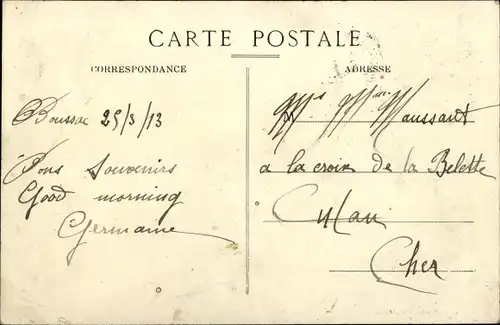 CARTE POSTALE
CORRESPONDANCE
ADRESSE
Boussac 25/3/13
Bons Souvenirs
Good morning
Germaine
Mr Mme Maussant
a la croix de la Belette
Culan
Cher